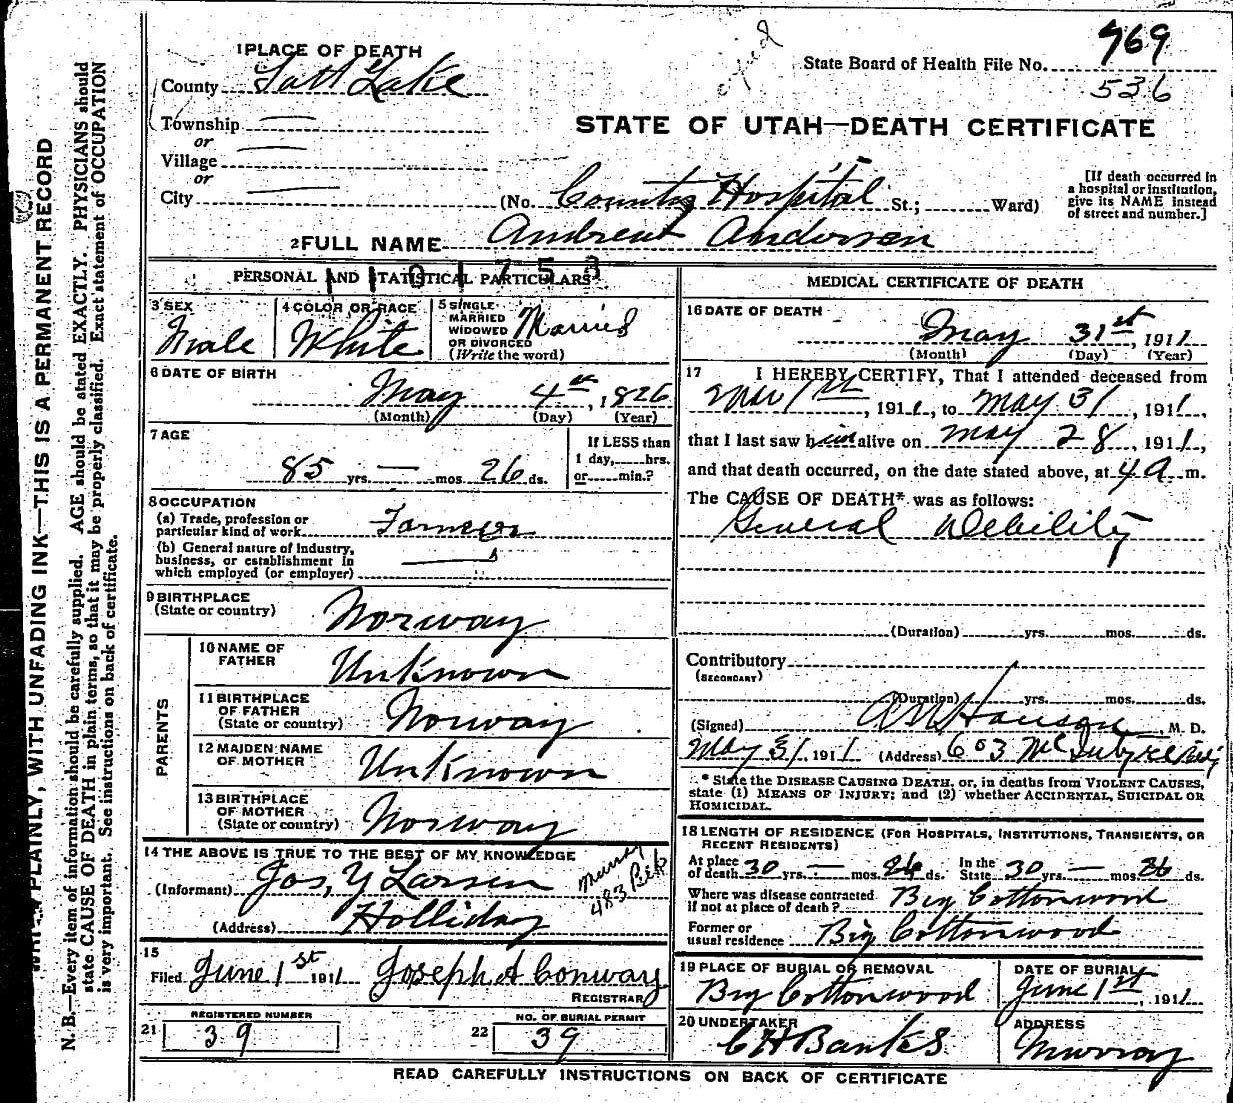 769
State Board of Health File No.
536
1 PLACE OF DEATH
County Salt Lake
Township
or
Village
or
City
STATE OF UTAH—DEATH CERTIFICATE
(No. County Hospital St.; Ward)
[If death occurred in
a hospital or institution,
give its NAME instead
of street and number.]
2 FULL NAME Andreas Andersen
PERSONAL AND STATISTICAL PARTICULARS
3 SEX
Male
4 COLOR OR RACE
White
5 SINGLE
MARRIED
WIDOWED
OR DIVORCED
(Write the word)
Married
6 DATE OF BIRTH
May 4th, 1826
(Month) (Day) (Year)
7 AGE
85 yrs. — mos. 26 ds.
If LESS than
1 day, hrs.
or min.?
8 OCCUPATION
(a) Trade, profession or
particular kind of work Farmer
(b) General nature of industry,
business, or establishment in
which employed (or employer)
9 BIRTHPLACE
(State or country) Norway
PARENTS
10 NAME OF
FATHER Unknown
11 BIRTHPLACE
OF FATHER
(State or country) Norway
12 MAIDEN NAME
OF MOTHER Unknown
13 BIRTHPLACE
OF MOTHER
(State or country) Norway
14 THE ABOVE IS TRUE TO THE BEST OF MY KNOWLEDGE
(Informant) Jos, Y Larsen
Murray
483
(Address) Holliday
15
Filed June 1st 1911 Joseph A Conway
REGISTRAR
21 REGISTERED NUMBER
39
22 NO. OF BURIAL PERMIT
39
MEDICAL CERTIFICATE OF DEATH
16 DATE OF DEATH
May 31st, 1911
(Month) (Day) (Year)
17 I HEREBY CERTIFY, That I attended deceased from
1st, 1911, to May 31, 1911,
that I last saw him alive on May 28, 1911,
and that death occurred, on the date stated above, at 4 a. m.
The CAUSE OF DEATH* was as follows:
General Debility
(Duration) yrs. mos. ds.
Contributory
(SECONDARY)
(Duration) yrs. mos. ds.
(Signed) Hanson M. D.
May 31, 1911 (Address) 603 McIntyre Bldg
* State the DISEASE CAUSING DEATH, or, in deaths from VIOLENT CAUSES,
state (1) MEANS OF INJURY; and (2) whether ACCIDENTAL, SUICIDAL OR
HOMICIDAL.
18 LENGTH OF RESIDENCE (FOR HOSPITALS, INSTITUTIONS, TRANSIENTS, OR
RECENT RESIDENTS)
At place
of death 30 yrs. — mos. 26 ds.
In the
State 30 yrs. — mos. 26 ds.
Where was disease contracted
if not at place of death? Big Cottonwood
Former or
usual residence Big Cottonwood
19 PLACE OF BURIAL OR REMOVAL
Big Cottonwood
DATE OF BURIAL
June 1st, 1911
20 UNDERTAKER
C H Banks
ADDRESS
Murray
READ CAREFULLY INSTRUCTIONS ON BACK OF CERTIFICATE
WRITE PLAINLY, WITH UNFADING INK—THIS IS A PERMANENT RECORD
N. B.—Every item of information should be carefully supplied. AGE should be stated EXACTLY. PHYSICIANS should
state CAUSE OF DEATH in plain terms, so that it may be properly classified. Exact statement of OCCUPATION
is very important. See instructions on back of certificate.